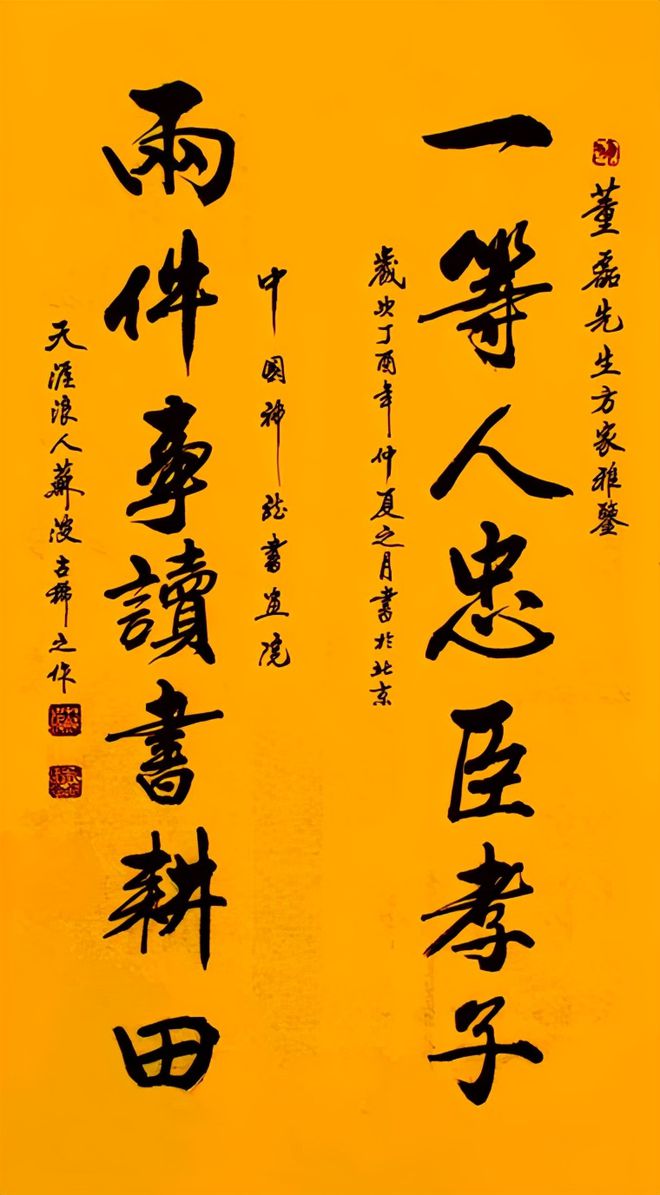 董磊先生方家雅鑒
一等人忠臣孝子
歲次丁酉年仲夏之月書於北京
中國神龍書画院
兩件事讀書耕田
天涯浪人蘇波古稀之作